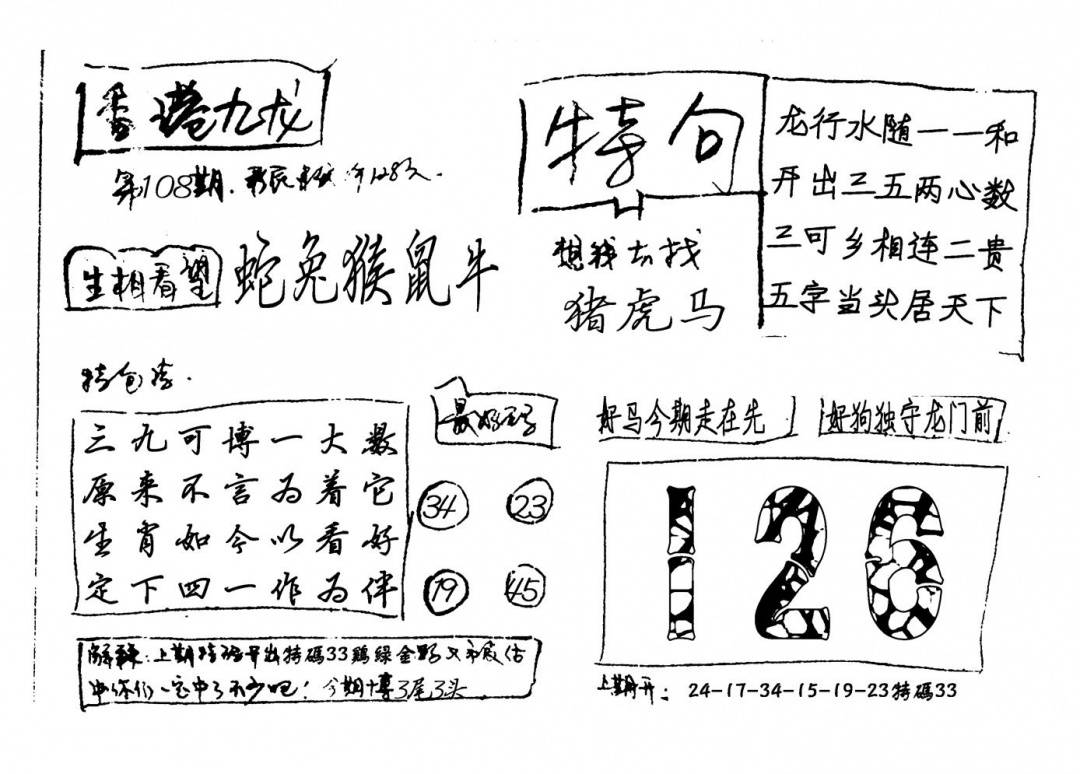 香港九龙
第108期.
生相看望
蛇兔猴鼠牛
特句
想我去找
猪虎马
龙行水随一一和
开出三五两心数
三可乡相连二贵
五字当头居天下
三九可博一大数
原来不言为着它
生肖如今以看好
定下四一作为伴
最好玩
34 23
19 45
好马今期走在先
好狗独守龙门前
126
上期特码开出特碼33鷄绿金野又被你估
中你们一定中了不少吧！今期博3尾3头
上期开：24-17-34-15-19-23特碼33